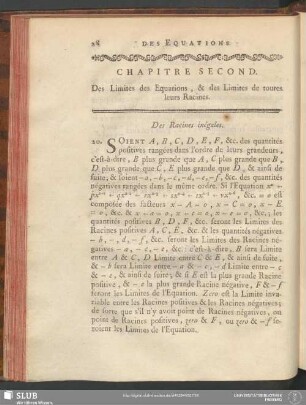 28 DES EQUATIONS
CHAPITRE SECOND.
Des Limites des Equations, & des Limites de toutes
leurs Racines.
Des Racines inégales.
20. SOIENT A, B, C, D, E, F, &c. des quantités
positives rangées dans l'ordre de leurs grandeurs,
c'est-à-dire, B plus grande que A, C plus grande que B,
D plus grande que C, E plus grande que D, & ainsi de
suite, & soient -a, -b, -c, -d, -e, -f, &c. des quantités
négatives rangées dans le même ordre. Si l'Equation
&c. = 0 est
composée des facteurs x - A = 0, x - B = 0, x - C = 0, x - E
= 0, &c. les
quantités positives B, D, F, &c. seront les Limites des
Racines positives A, C, E, &c. & les quantités négatives
-b, -d, -f, &c. seront les Limites des Racines néga-
tives -a, -c, -e, &c; c'est-à-dire, B sera Limite
entre A & C, D Limite entre C & E, & ainsi de suite,
& -b sera Limite entre -a & -c, -d Limite entre -c
& -e, & ainsi de suite; & si E est la plus grande Racine
positive, & -e la plus grande Racine négative, F & -f
seront les Limites de l'Equation. Zero est la Limite inva-
riable entre les Racines positives & les Racines négatives;
de sorte que s'il n'y avoit point de Racines négatives, ou
point de Racines positives, zero & F, ou zero & -f se-
roient les Limites de l'Equation.
SLUB
Wir führen Wissen.